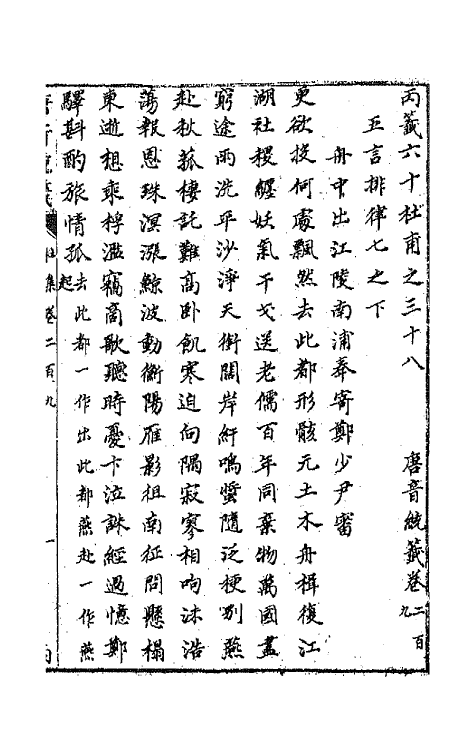 丙籖六十杜甫之三十八　唐音統籖卷二百九
五言排律七之下
舟中出江陵南浦奉寄鄭少尹審
更欲投何處飄然去此都形骸元土木舟楫復江
湖社稷纒妖氣干戈送老儒百年同棄物萬國盡
窮途雨洗平沙淨天銜闊岸紆鳴螿隨泛梗别燕
赴秋菰棲託難高卧飢寒迫向隅寂寥相呴沫浩
蕩報恩珠溟漲鯨波動衡陽雁影徂南征問懸榻
東逝想乘桴濫竊商歌聽時憂卞泣誅經過憶鄭
驛斟酌旅情孤去此都一作出此都燕赴一作燕
起
杜集卷二百九
一